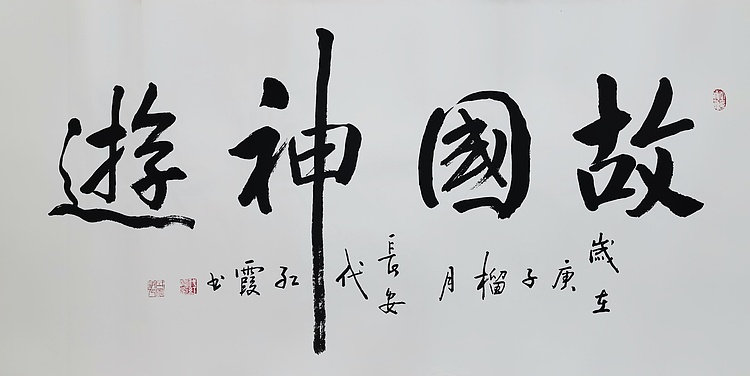 故國神遊
歲在庚子榴月長安代紅霞书